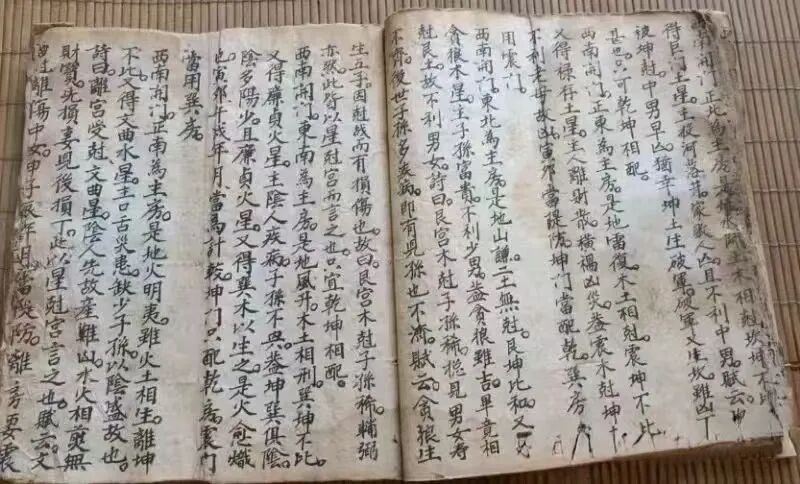 開门正北為主房是地 相尅坎坤不比
得巨门土星主投河落井家敗人凶且不利中男賦云坤
被坤尅中男早凶猶幸坤土生破軍破軍又生坎雖凶不
甚也只可乾坤相配
西南開门正東為主房是地雷復木土相尅震坤不比
又得祿存土星主人離財散橫禍凶災益震木尅坤土
不利老母故凶寅卯年當隄防坤门當配乾巽房
用震门
西南開门東北為主房是地山謙二土無尅艮坤比和又
貪狼木星主子孫富貴不利少男益貪狼雖吉畢竟相
尅艮土故不利男女詩曰艮宮木尅子孫稀總見男女寿
不齊後世子孫多 即有児孫也不濟賦云貪狼生
生五子因尅战而有損傷也故曰艮宮木尅子孫稀輔弼
亦然此皆以星尅宮而言之也只宜乾坤相配
西南開门東南為主房是地風升木土相刑巽坤不比
又得廉貞火星主陰人疾病子孫不興益坤巽俱陰
陰多陽少且廉貞火星又得巽木以生之是火愈熾
也寅卯午戌年月當為計較坤门只配乾房震门
當用巽房
西南開门正南為主房是地火明夷雖火土相生離坤
不比又得文曲水星主口舌災患缺少子孫以陰盛故也
詩曰離宮受尅文曲星陰人先故產難凶水火相煎無
財寶先損妻児後損丁此以星尅宮言之也賦云文
離傷中女申子辰年月當隄防離房要震